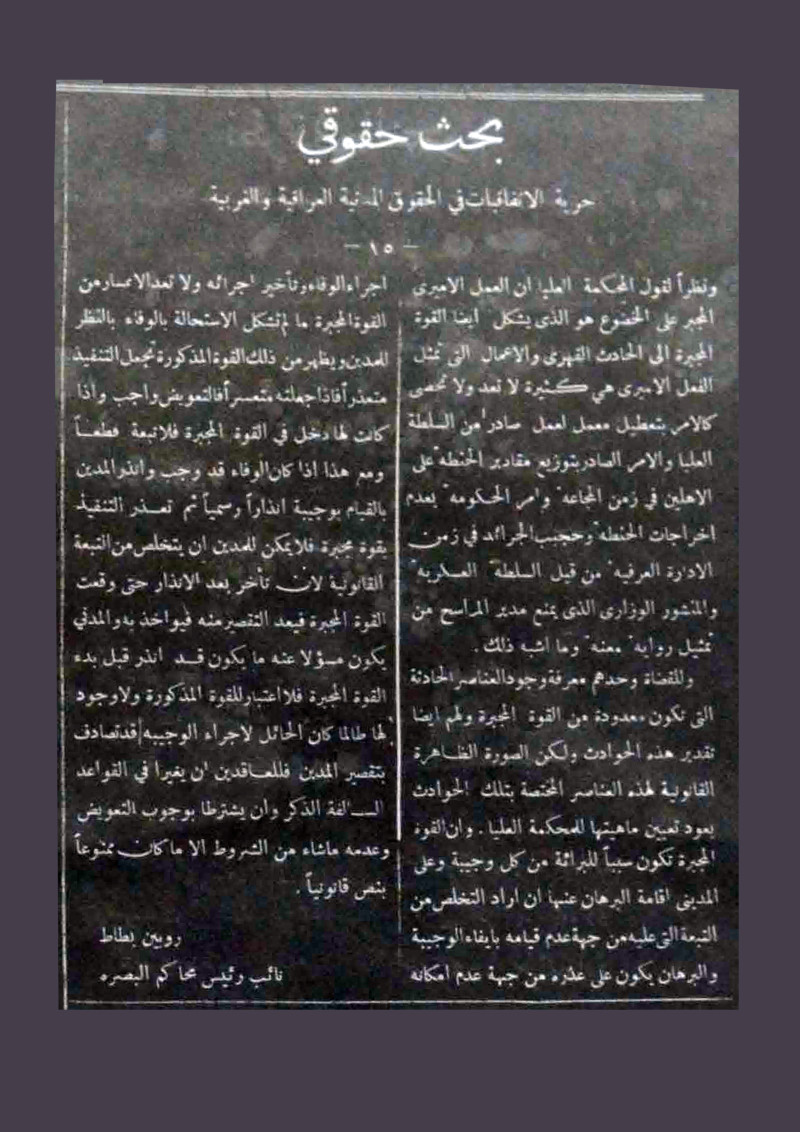 بحث حقوقي
حرية الاتفاقيات في الحقوق المدنية العراقية والغربية
— ١٥ —
ونظراً لقول المحكمة العليا ان العمل الاميرى
المجبر على الخضوع هو الذى يشكل ايضا القوة
المجبرة الى الحادث القهرى والاعمال التى تمثل
الفعل الاميرى هي كثيرة لا تعد ولا تحصى
كالامر بتعطيل معمل لعمل صادر من السلطة
العليا والامر الصادر بتوزيع مقادير الحنطه على
الاهلين في زمن المجاعه وامر الحكومه بعدم
اخراجات الحنطه وحجب الجرائد في زمن
الادارة العرفيه من قبل السلطة العسكريه
والمنشور الوزارى الذى يمنع مدير المراسح من
تمثيل روايه معنه وما اشبه ذلك .
وللقضاة وحدهم معرفة وجود العناصر الحادثة
التى تكون معدودة من القوة المجبرة ولهم ايضا
تقدير هذه الحوادث ولكن الصورة الظاهرة
القانونية لهذه العناصر المختصة بتلك الحوادث
يعود تعيين ماهيتها للمحكمة العليا . وان القوه
المجبرة تكون سبباً للبرائة من كل وجيبة وعلى
المديني اقامة البرهان عنها ان اراد التخلص من
التبعة التى عليه من جهة عدم قيامه بايفاء الوجيبة
والبرهان يكون على عذره من جهة عدم امكانه
اجراء الوفاء وتأخير اجرائه ولا تعد الاعسار من
القوة المجبرة ما لم تشكل الاستحالة بالوفاء بالنظر
للمدين ويظهر من ذلك القوة المذكورة تجعل التنفيذ
متعذراً فاذا جعلته متعسراً فالتعويض واجب واذا
كانت لها دخل في القوة المجبرة فلا تبعة قطعاً
ومع هذا اذا كان الوفاء قد وجب وانذر المدين
بالقيام بوجيبة انذاراً رسمياً ثم تعذر التنفيذ
بقوة مجبرة فلا يمكن للمدين ان يتخلص من التبعة
القانونية لان تأخر بعد الانذار حتى وقعت
القوة المجبرة فيعد التقصير منه فيواخذ به والمدني
يكون مسؤلا عنه ما يكون قد انذر قبل بدء
القوة المجبرة فلا اعتبار للقوة المذكورة ولا وجود
لها طالما كان الحائل لاجراء الوجيبه قد تصادف
بتقصير المدين فللعاقدين ان يغيرا في القواعد
السالفة الذكر وان يشترطا بوجوب التعويض
وعدمه ماشاء من الشروط الا ما كان ممنوعاً
بنص قانونياً .
روبين بطاط
نائب رئيس محاكم البصره